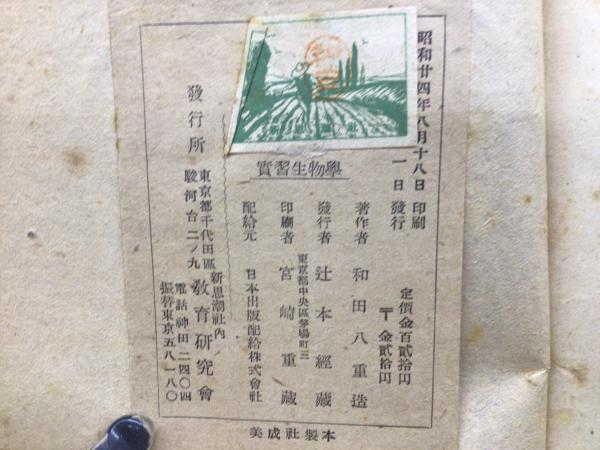 昭和廿四年八月十八日 印刷
一日 發行
定價金百貳拾円
〒 金貳拾円
實習生物學
著作者 和田八重造
發行者 辻本經藏
東京都中央區茅場町三
印刷者 宮崎重藏
配給元 日本出版配給株式會社
發行所
東京都千代田區
駿河台二ノ九
新思潮社内
教育研究會
電話神田二四〇四
振替東京五八一八〇
美成社製本